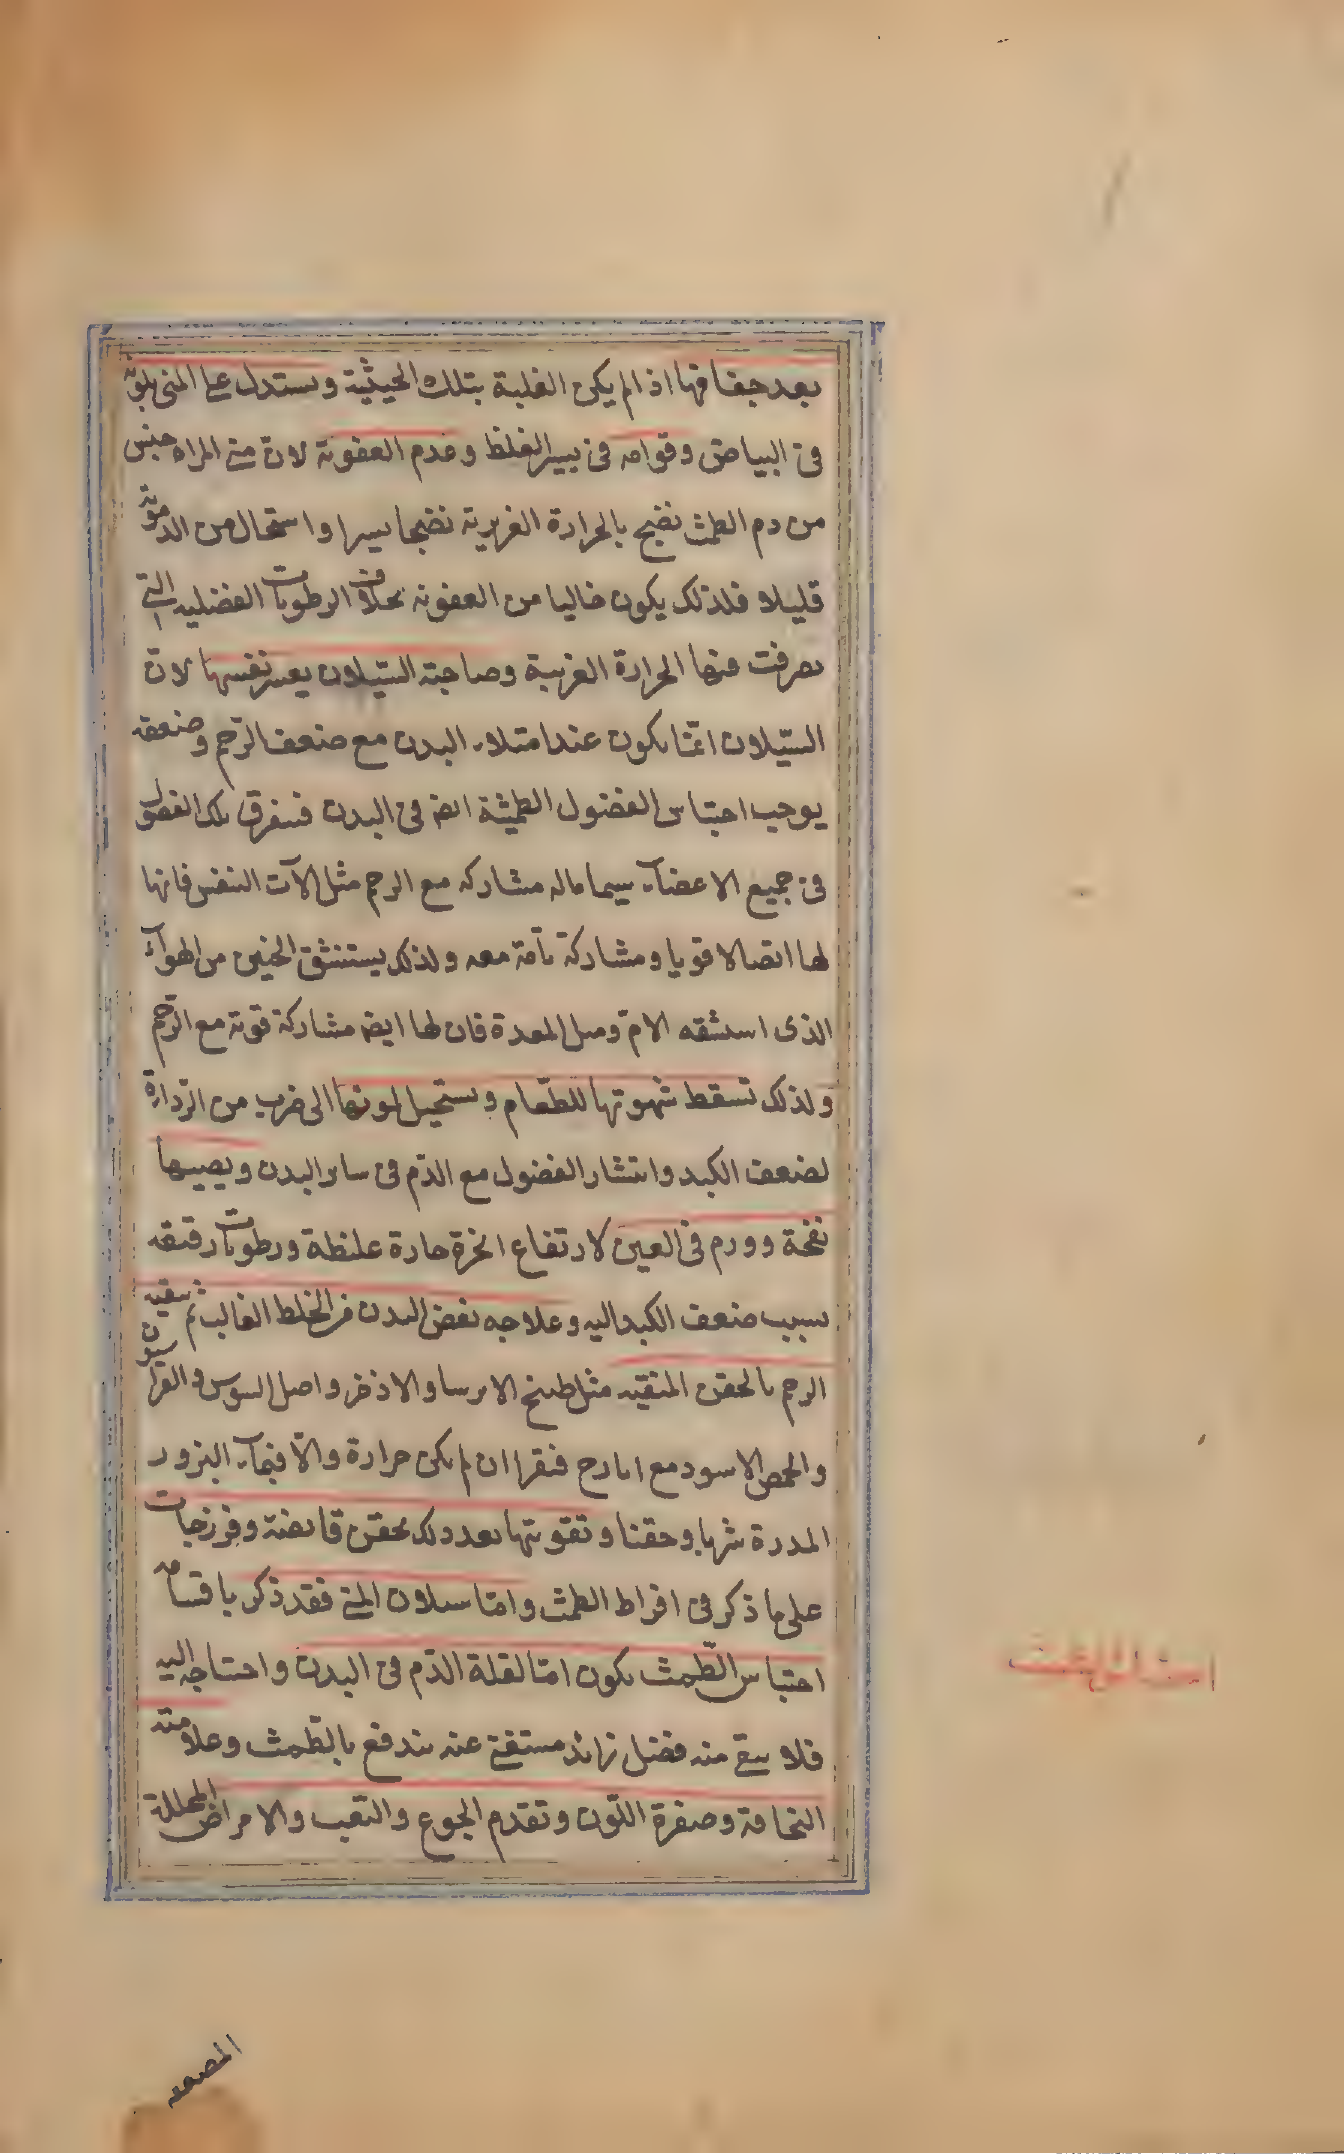 بعد جفافها اذا لم يكن الغلبة بتلك الحيثية ويستدل على المنى بلونه
فى البياض وقوامه فى يسير الغلظ وعدم العفونة لان منى المراه جنس
من دم الطمث نضج بالحرارة الغريزية نضجا يسيرا واستحال من الدموية
قليلا فلذلك يكون خاليا من العفونة بخلاف الرطوبات الفضليه التى
تصرفت فيها الحرارة الغريبة وصاحبة السّيلان يعسر نفسها لان
السّيلان انّما يكون عند امتلاء البدن مع ضعف الرّحم وضعفه
يوجب احتباس الفضول الطمثية ايضا فى البدن فيتفرق تلك الفضول
فى جميع الاعضاء سيما ماله مشاركه مع الرحم مثل الآت التنفس فانها
لها اتصالا قويا ومشاركة تامّة معه ولذلك يستنشق الجنين من الهوآء
الذى استنشقه الامّ ومثل المعدة فان لها ايضا مشاركة قوية مع الرّحم
ولذلك تسقط شهوتها للطّعام ويستحيل لونها الى ضرب من الرّداءة
لضعف الكبد وانتشار الفضول مع الدّم فى سائر البدن ويصيبها
نفخة وورم فى العين لارتفاع ابخرة حارة غليظة ورطوبات رقيقه
بسبب ضعف الكبد اليه وعلاجه نفض البدن من الخلط الغالب ثم تنقيه
الرحم بالحقن المنقيه مثل طبيخ الايرسا والاذخر واصل السوس والفراسيون
والحمص الاسود مع ايارج فيقرا ان لم يكن حرارة والّا فبماء البزور
المدرة شربا وحقنا وتقويتها بعد ذلك بحقن قابضة وفرزجات
على ما ذكر فى افراط الطمث وامّا سيلان المنى فقد ذكر باقسامه
احتباس الطّمث يكون امّا لقلة الدّم فى البدن واحتياجه اليه
فلا يبقى منه فضل زائد مستغنى عنه يندفع بالطّمث وعلامته
النحافة وصفرة اللّون وتقدم الجوع والتعب والامراض المحللة
احتباس الطمث
المضعفه